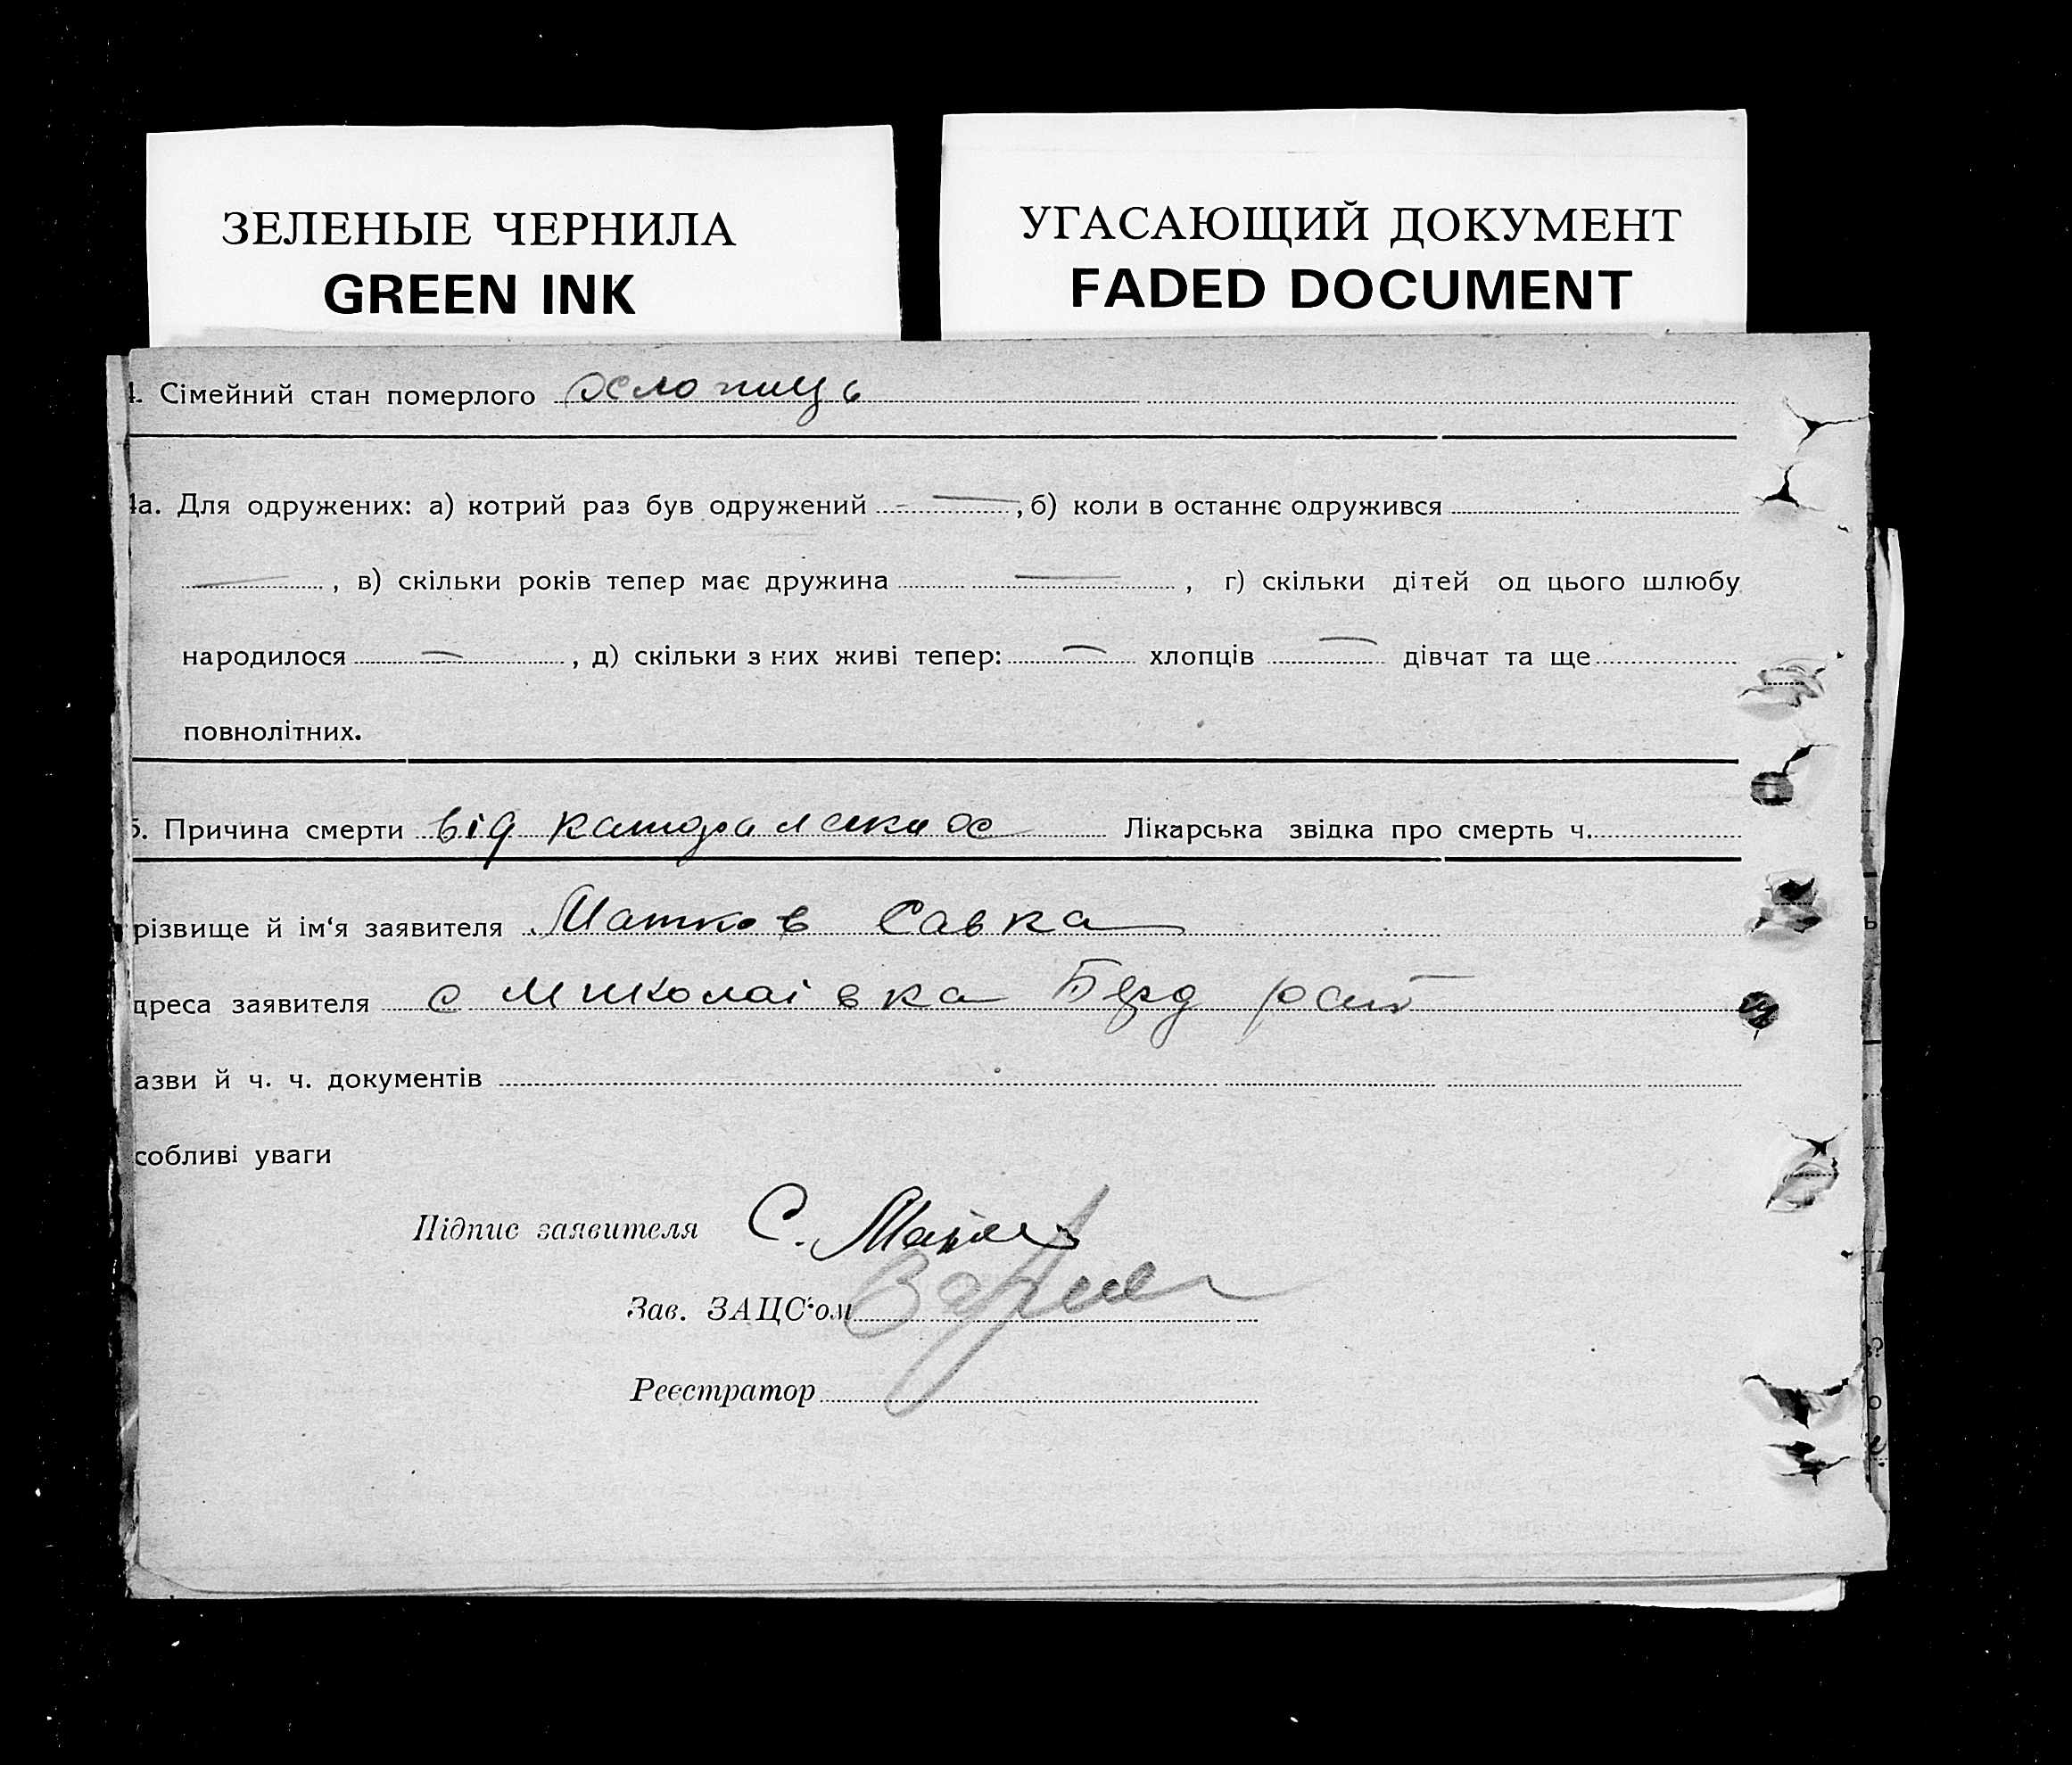 ЗЕЛЕНЫЕ ЧЕРНИЛА
GREEN INK
УГАСАЮЩИЙ ДОКУМЕНТ
FADED DOCUMENT
4. Сімейний стан померлого хлопиць
4а. Для одружених: а) котрий раз був одружений — , б) коли в останнє одружився
— , в) скільки років тепер має дружина — , г) скільки дітей од цього шлюбу
народилося — , д) скільки з них живі тепер: — хлопців — дівчат та ще
повнолітних.
5. Причина смерти від Лікарська звідка про смерть ч.
різвище й ім‘я заявителя Матков Савка
дреса заявителя с Миколаівка Берд рай
азви й ч. ч. документів
собливі уваги
Підпис заявителя С.
Зав. ЗАЦС‘ом
Реєстратор